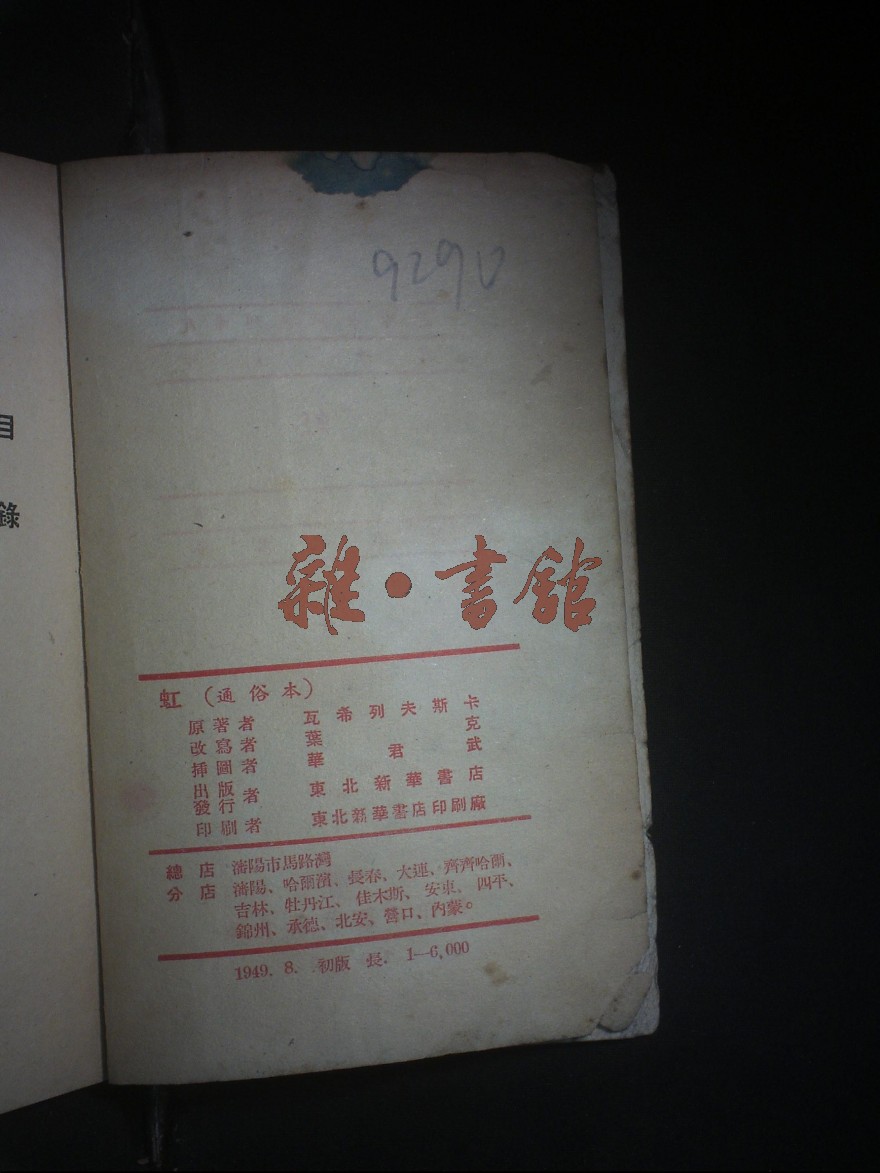 9290
目
錄
雜·書館
虹（通俗本）
原著者 瓦希列夫斯卡
改寫者 葉克
挿圖者 華君武
出版
發行者 東北新華書店
印刷者 東北新華書店印刷廠
總店 瀋陽市馬路灣
分店 瀋陽、哈爾濱、長春、大連、齊齊哈爾、
吉林、牡丹江、佳木斯、安東、四平、
錦州、承德、北安、營口、內蒙。
1949. 8. 初版 長. 1—6,000